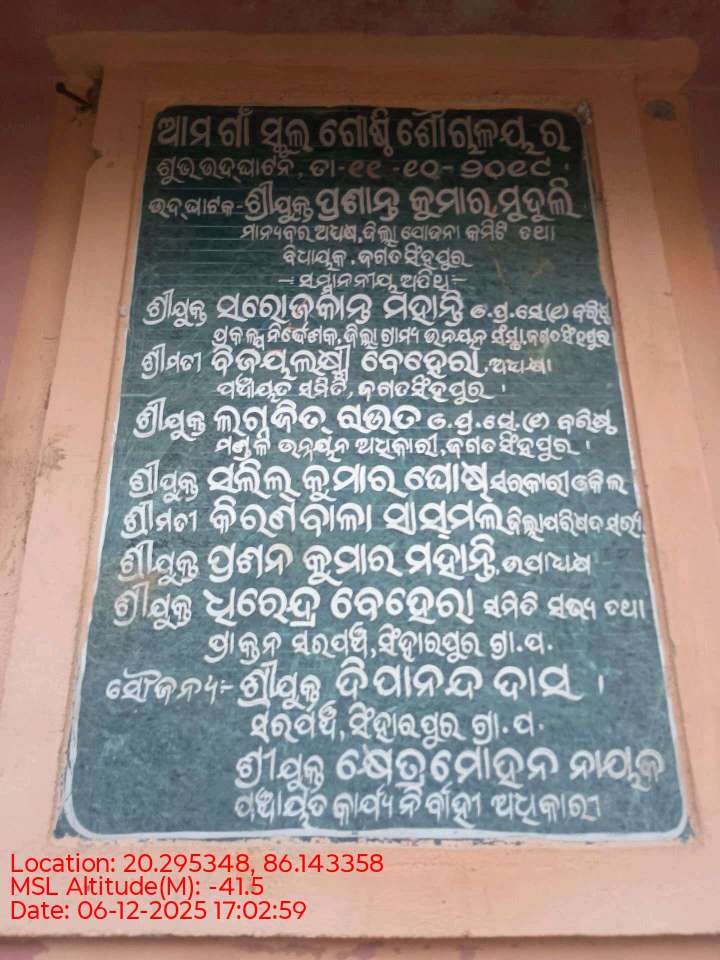 ଆମ ଗାଁ ସ୍କୁଲ ଗୋଷ୍ଠି ଶୌଚାଳୟ ର
ଶୁଭ ଉଦ୍‌ଘାଟନ, ତା-୧୧-୧୦-୨୦୧୯
ଉଦ୍‌ଘାଟକ-ଶ୍ରୀଯୁକ୍ତ ପ୍ରଶାନ୍ତ କୁମାର ମୁଦୁଲି
ମାନ୍ୟବର ଅଧ୍ୟକ୍ଷ, ଜିଲ୍ଲା ଯୋଜନା କମିଟି ତଥା
ବିଧାୟକ, ଜଗତସିଂହପୁର
-ସମ୍ମାନନୀୟ ଅତିଥି-
ଶ୍ରୀଯୁକ୍ତ ସରୋଜକାନ୍ତ ମହାନ୍ତି ଓ.ପ୍ର.ସେ.(୧) ବରିଷ୍ଠ
ପ୍ରକଳ୍ପ ନିର୍ଦ୍ଦେଶକ, ଜିଲ୍ଲା ଗ୍ରାମ୍ୟ ଉନ୍ନୟନ ସଂସ୍ଥା, ଜଗତସିଂହପୁର
ଶ୍ରୀମତୀ ବିଜୟଲକ୍ଷ୍ମୀ ବେହେରା, ଅଧ୍ୟକ୍ଷା
ପଞ୍ଚାୟତ ସମିତି, ଜଗତସିଂହପୁର ।
ଶ୍ରୀଯୁକ୍ତ ଲଗ୍ନଜିତ୍ ରାଉତ ଓ.ପ୍ର.ସେ.(୧) ବରିଷ୍ଠ
ମଣ୍ଡଳ ଉନ୍ନୟନ ଅଧିକାରୀ, ଜଗତସିଂହପୁର ।
ଶ୍ରୀଯୁକ୍ତ ସଲିଲ୍ କୁମାର ଘୋଷ ସରକାରୀ ଓକିଲ
ଶ୍ରୀମତୀ କିରଣବାଳା ସାସମଲ ଜିଲ୍ଲାପରିଷଦ ସଭ୍ୟା
ଶ୍ରୀଯୁକ୍ତ ପ୍ରଶନ କୁମାର ମହାନ୍ତି, ଉପାଧ୍ୟକ୍ଷ
ଶ୍ରୀଯୁକ୍ତ ଧିରେନ୍ଦ୍ର ବେହେରା ସମିତି ସଭ୍ୟ ତଥା
ପ୍ରାକ୍ତନ ସରପଞ୍ଚ, ସିଂହାରପୁର ଗ୍ରା.ପ.
ସୌଜନ୍ୟ:- ଶ୍ରୀଯୁକ୍ତ ଦିପାନନ୍ଦ ଦାସ ।
ସରପଞ୍ଚ, ସିଂହାରପୁର ଗ୍ରା.ପ.
ଶ୍ରୀଯୁକ୍ତ କ୍ଷେତ୍ରମୋହନ ନାୟକ
ପଞ୍ଚାୟତ କାର୍ଯ୍ୟନିର୍ବାହୀ ଅଧିକାରୀ
Location: 20.295348, 86.143358
MSL Altitude(M): -41.5
Date: 06-12-2025 17:02:59